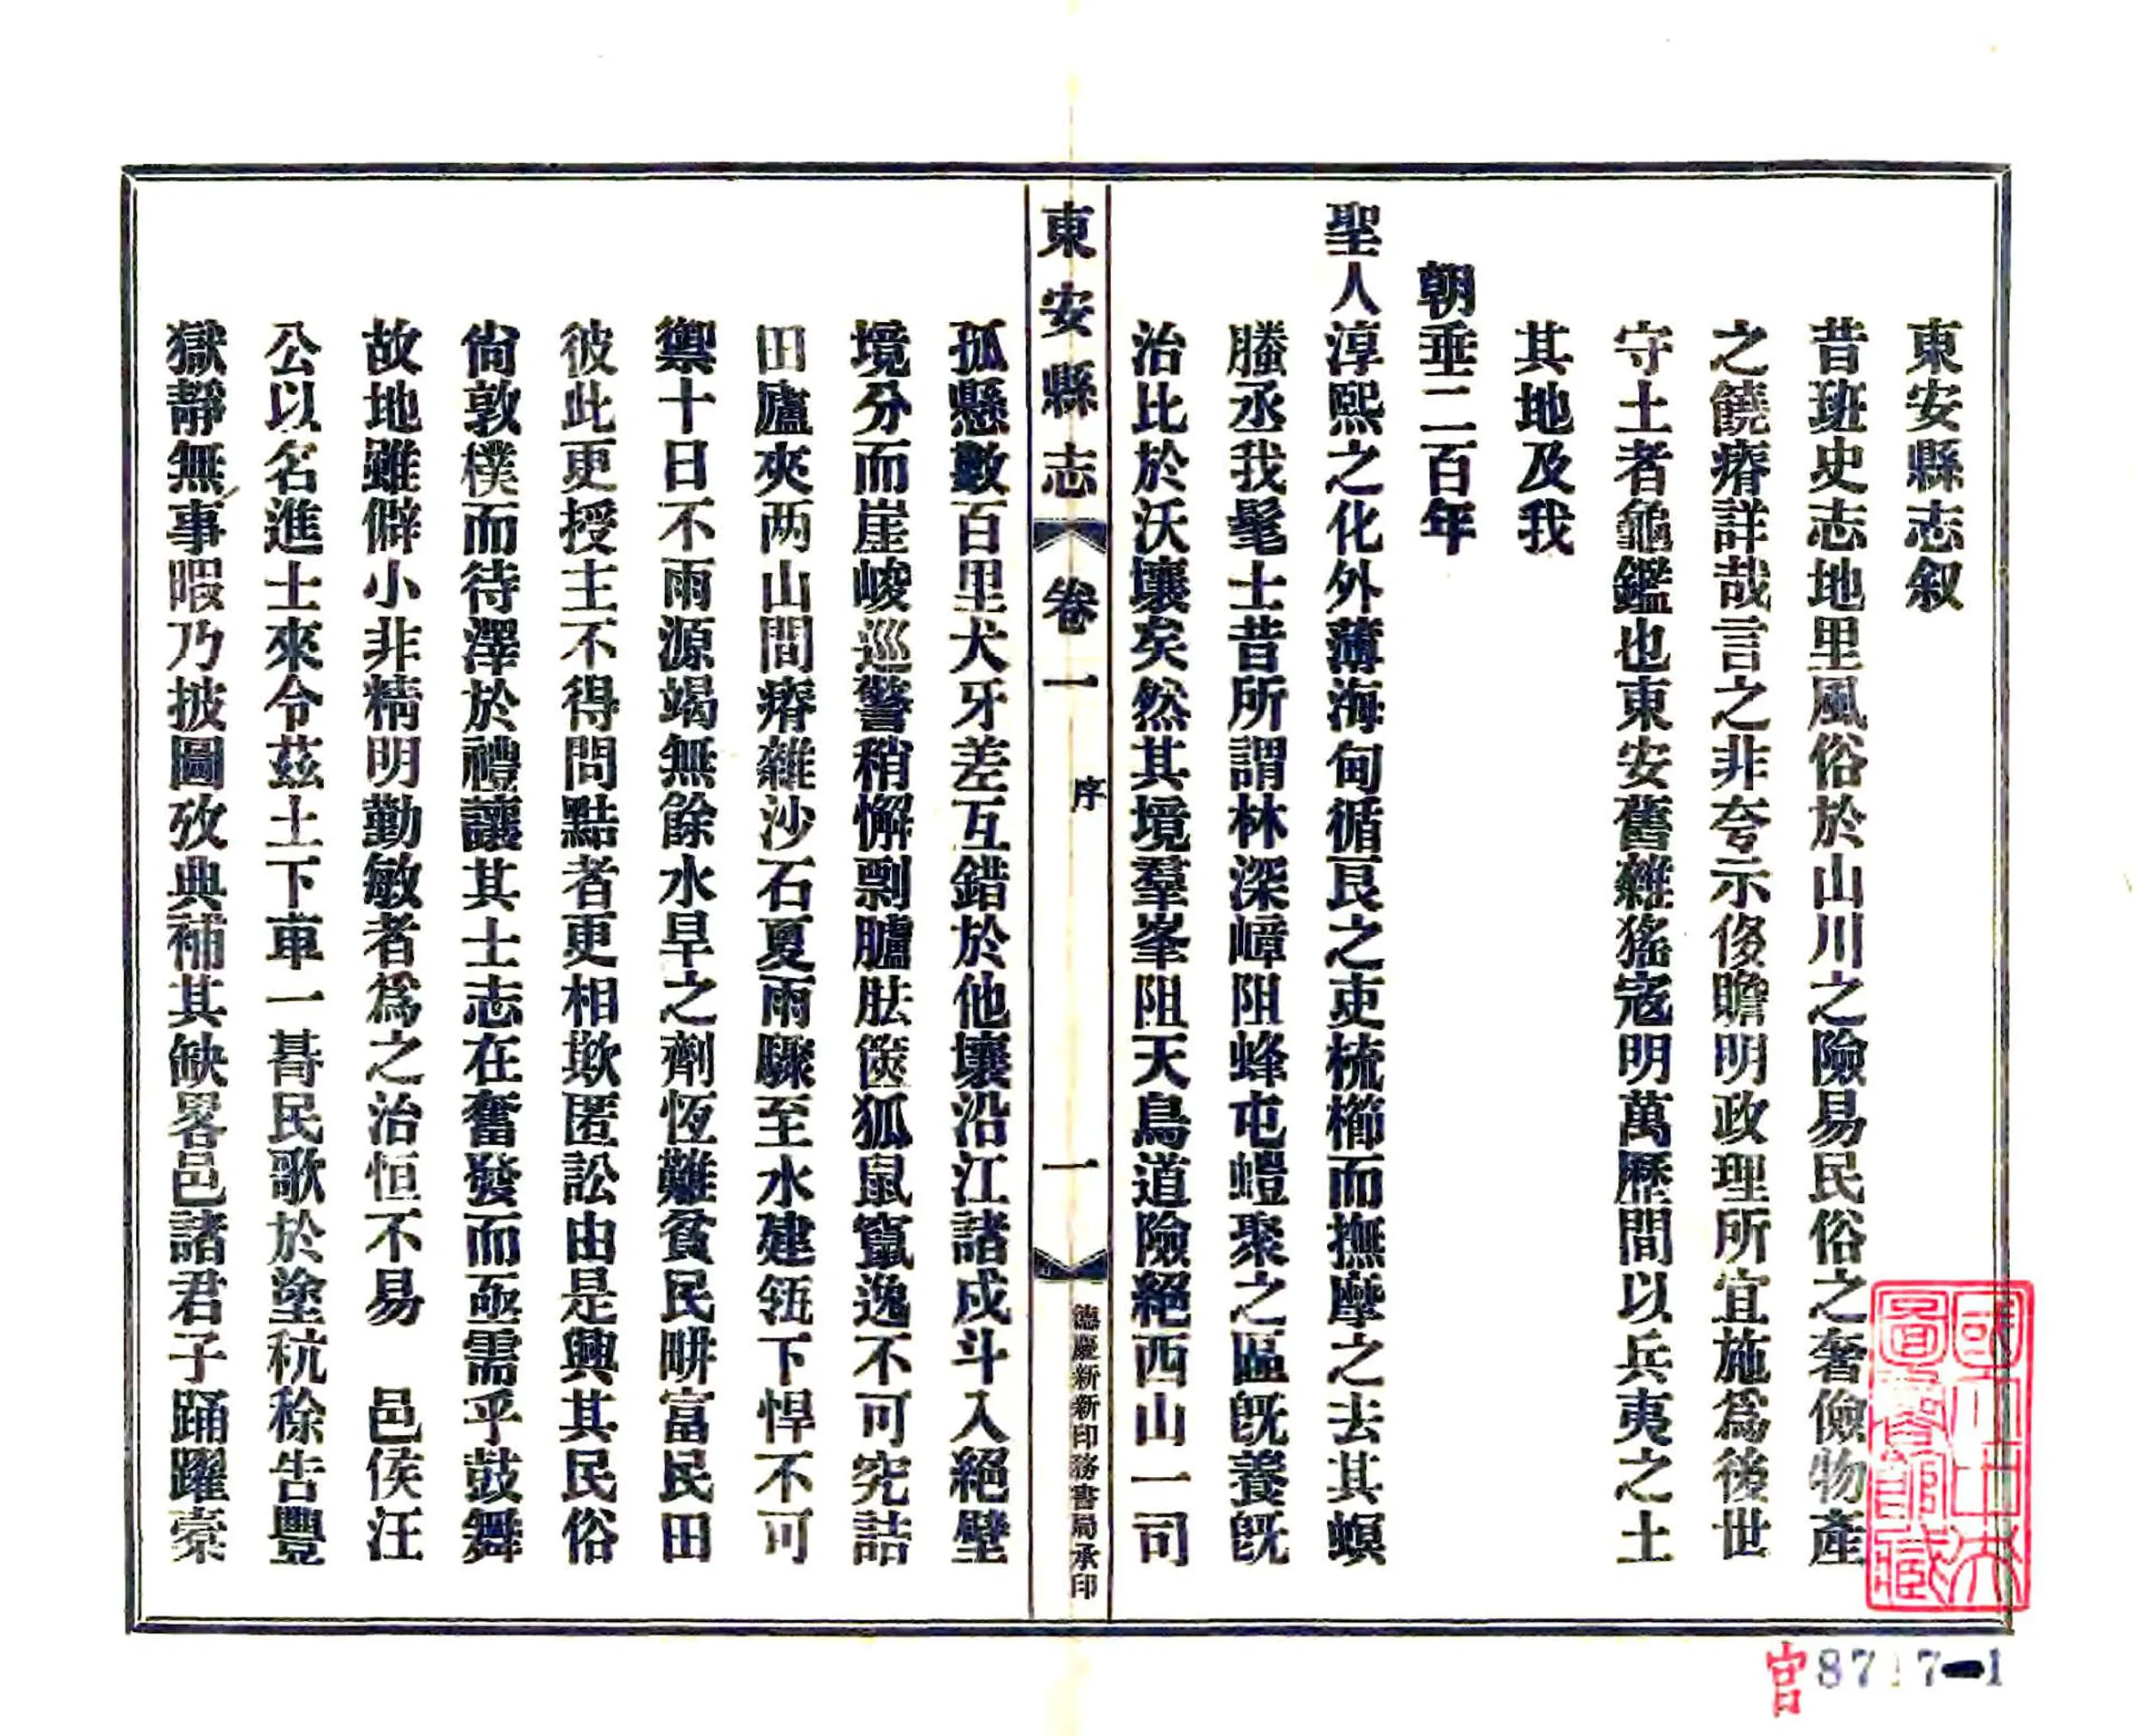 東安縣志叙
昔班史志地里風俗於山川之險易民俗之奢儉物產
之饒瘠詳哉言之非夸示侈贍明政理所宜施爲後世
守土者龜鑑也東安舊雜猺寇明萬歷間以兵夷之土
其地及我
朝垂二百年
聖人淳熙之化外薄海甸循良之吏梳櫛而撫摩之去其螟
螣丞我髦士昔所謂林深嶂阻蜂屯螘聚之區旣養旣
治比於沃壤矣然其境羣峯阻天鳥道險絕西山一司
東安縣志
卷一
序
一
德慶新新印務書局承印
孤懸數百里犬牙差互錯於他壤沿江諸戍斗入絕壁
境分而崖峻巡警稍懈剽臚胠篋狐鼠竄逸不可究詰
田廬夾两山間瘠雜沙石夏雨驟至水建瓴下悍不可
禦十日不雨源竭無餘水旱之劑恆難貧民畊富民田
彼此更授主不得問黠者更相欺匿訟由是興其民俗
尙敦樸而待澤於禮讓其士志在奮發而亟需乎鼓舞
故地雖僻小非精明勤敏者爲之治恒不易　邑侯汪
公以名進士來令茲土下車一朞民歌於塗秔稌告豐
獄靜無事暇乃披圖攷典補其缺畧邑諸君子踊躍槖
國立中央圖書館藏
官 8717-1